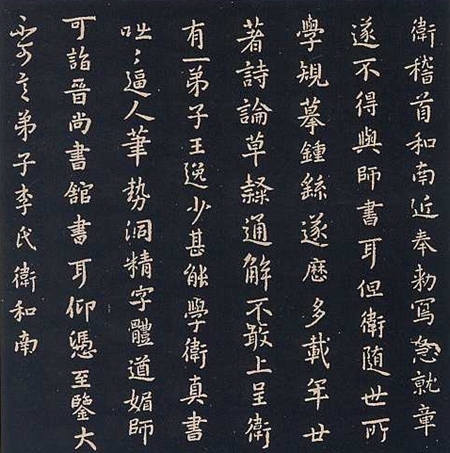 衛稽首和南近奉勅寫急就章
遂不得與師書耳但衛隨世所
學規摹鍾繇遂歷多載年廿
著詩論草隸通解不敢上呈衛
有一弟子王逸少甚能學衛真書
咄〻逼人筆勢洞精字體遒媚師
可詣晉尚書舘書耳仰憑至鑒大
不可言弟子李氏衛和南